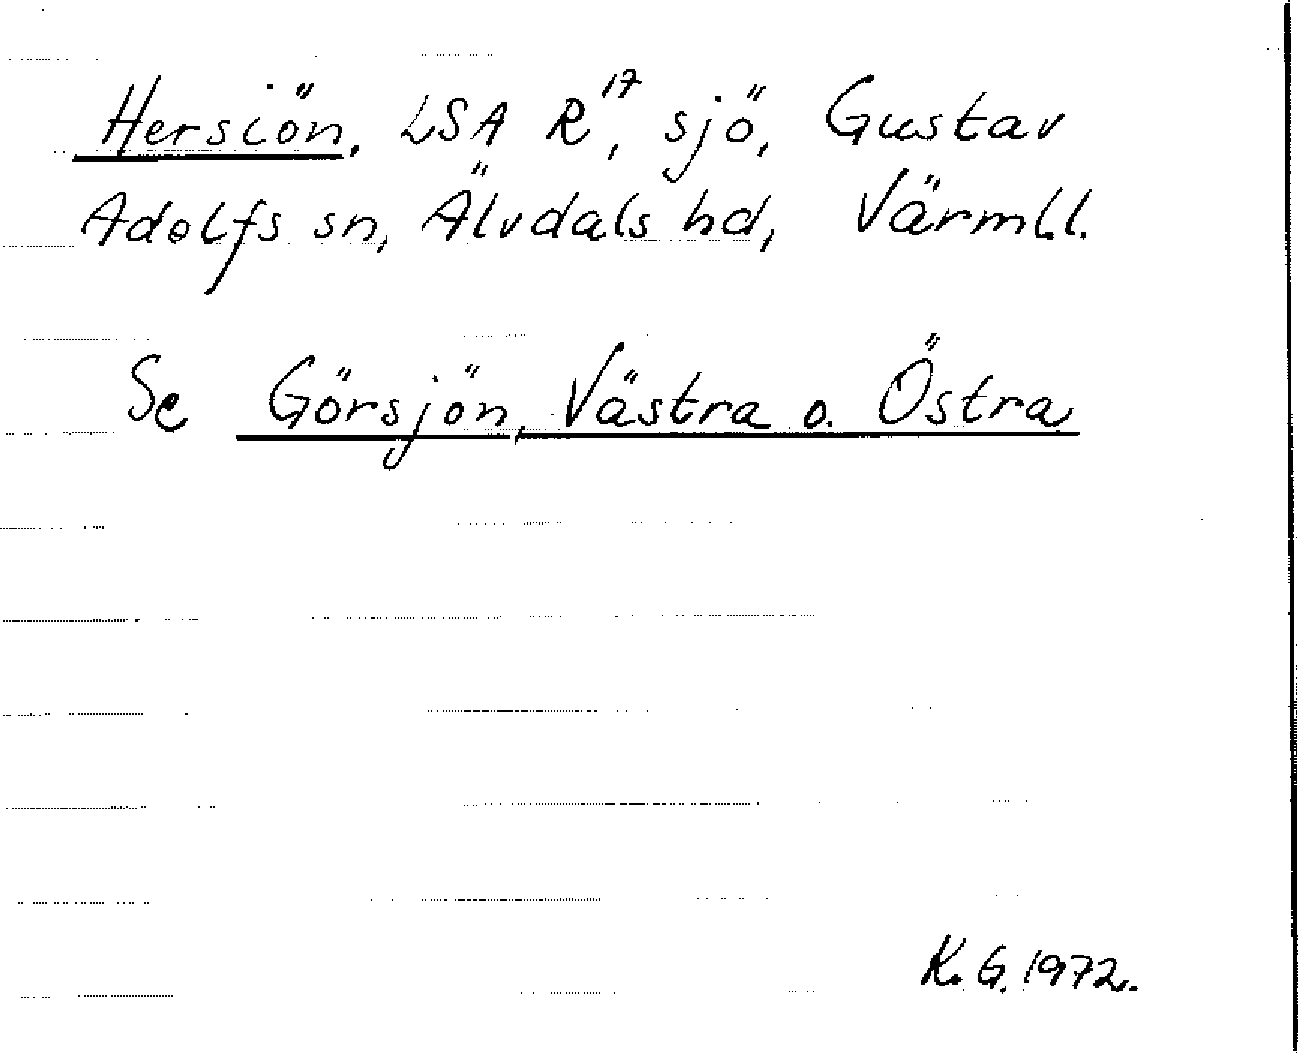 Hersiön, LSA R¹⁷, sjö, Gustav
Adolfs sn, Älvdals hd, Värml.l.
Se Görsjön, Västra o. Östra
K. G. 1972.